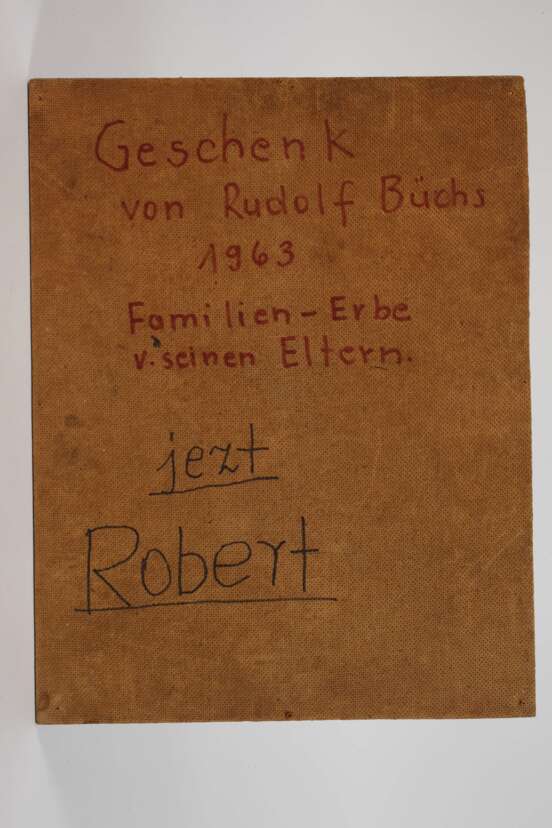 Geschenk
von Rudolf Büchs
1963
Familien-Erbe
v. seinen Eltern.
jezt
Robert